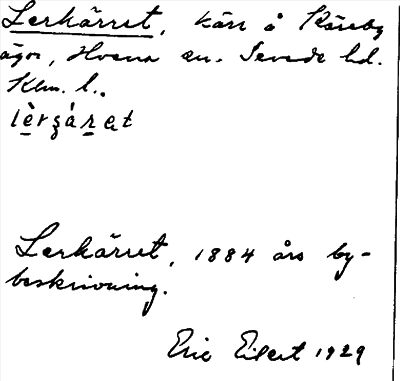 Lerkärret, kärr å Kåreby
ägor, Hvena sn. Sevede hd.
Klm. l.
lèrʒáret
Lerkärret, 1884 års by-
beskrivning.
Eric Eilert 1929